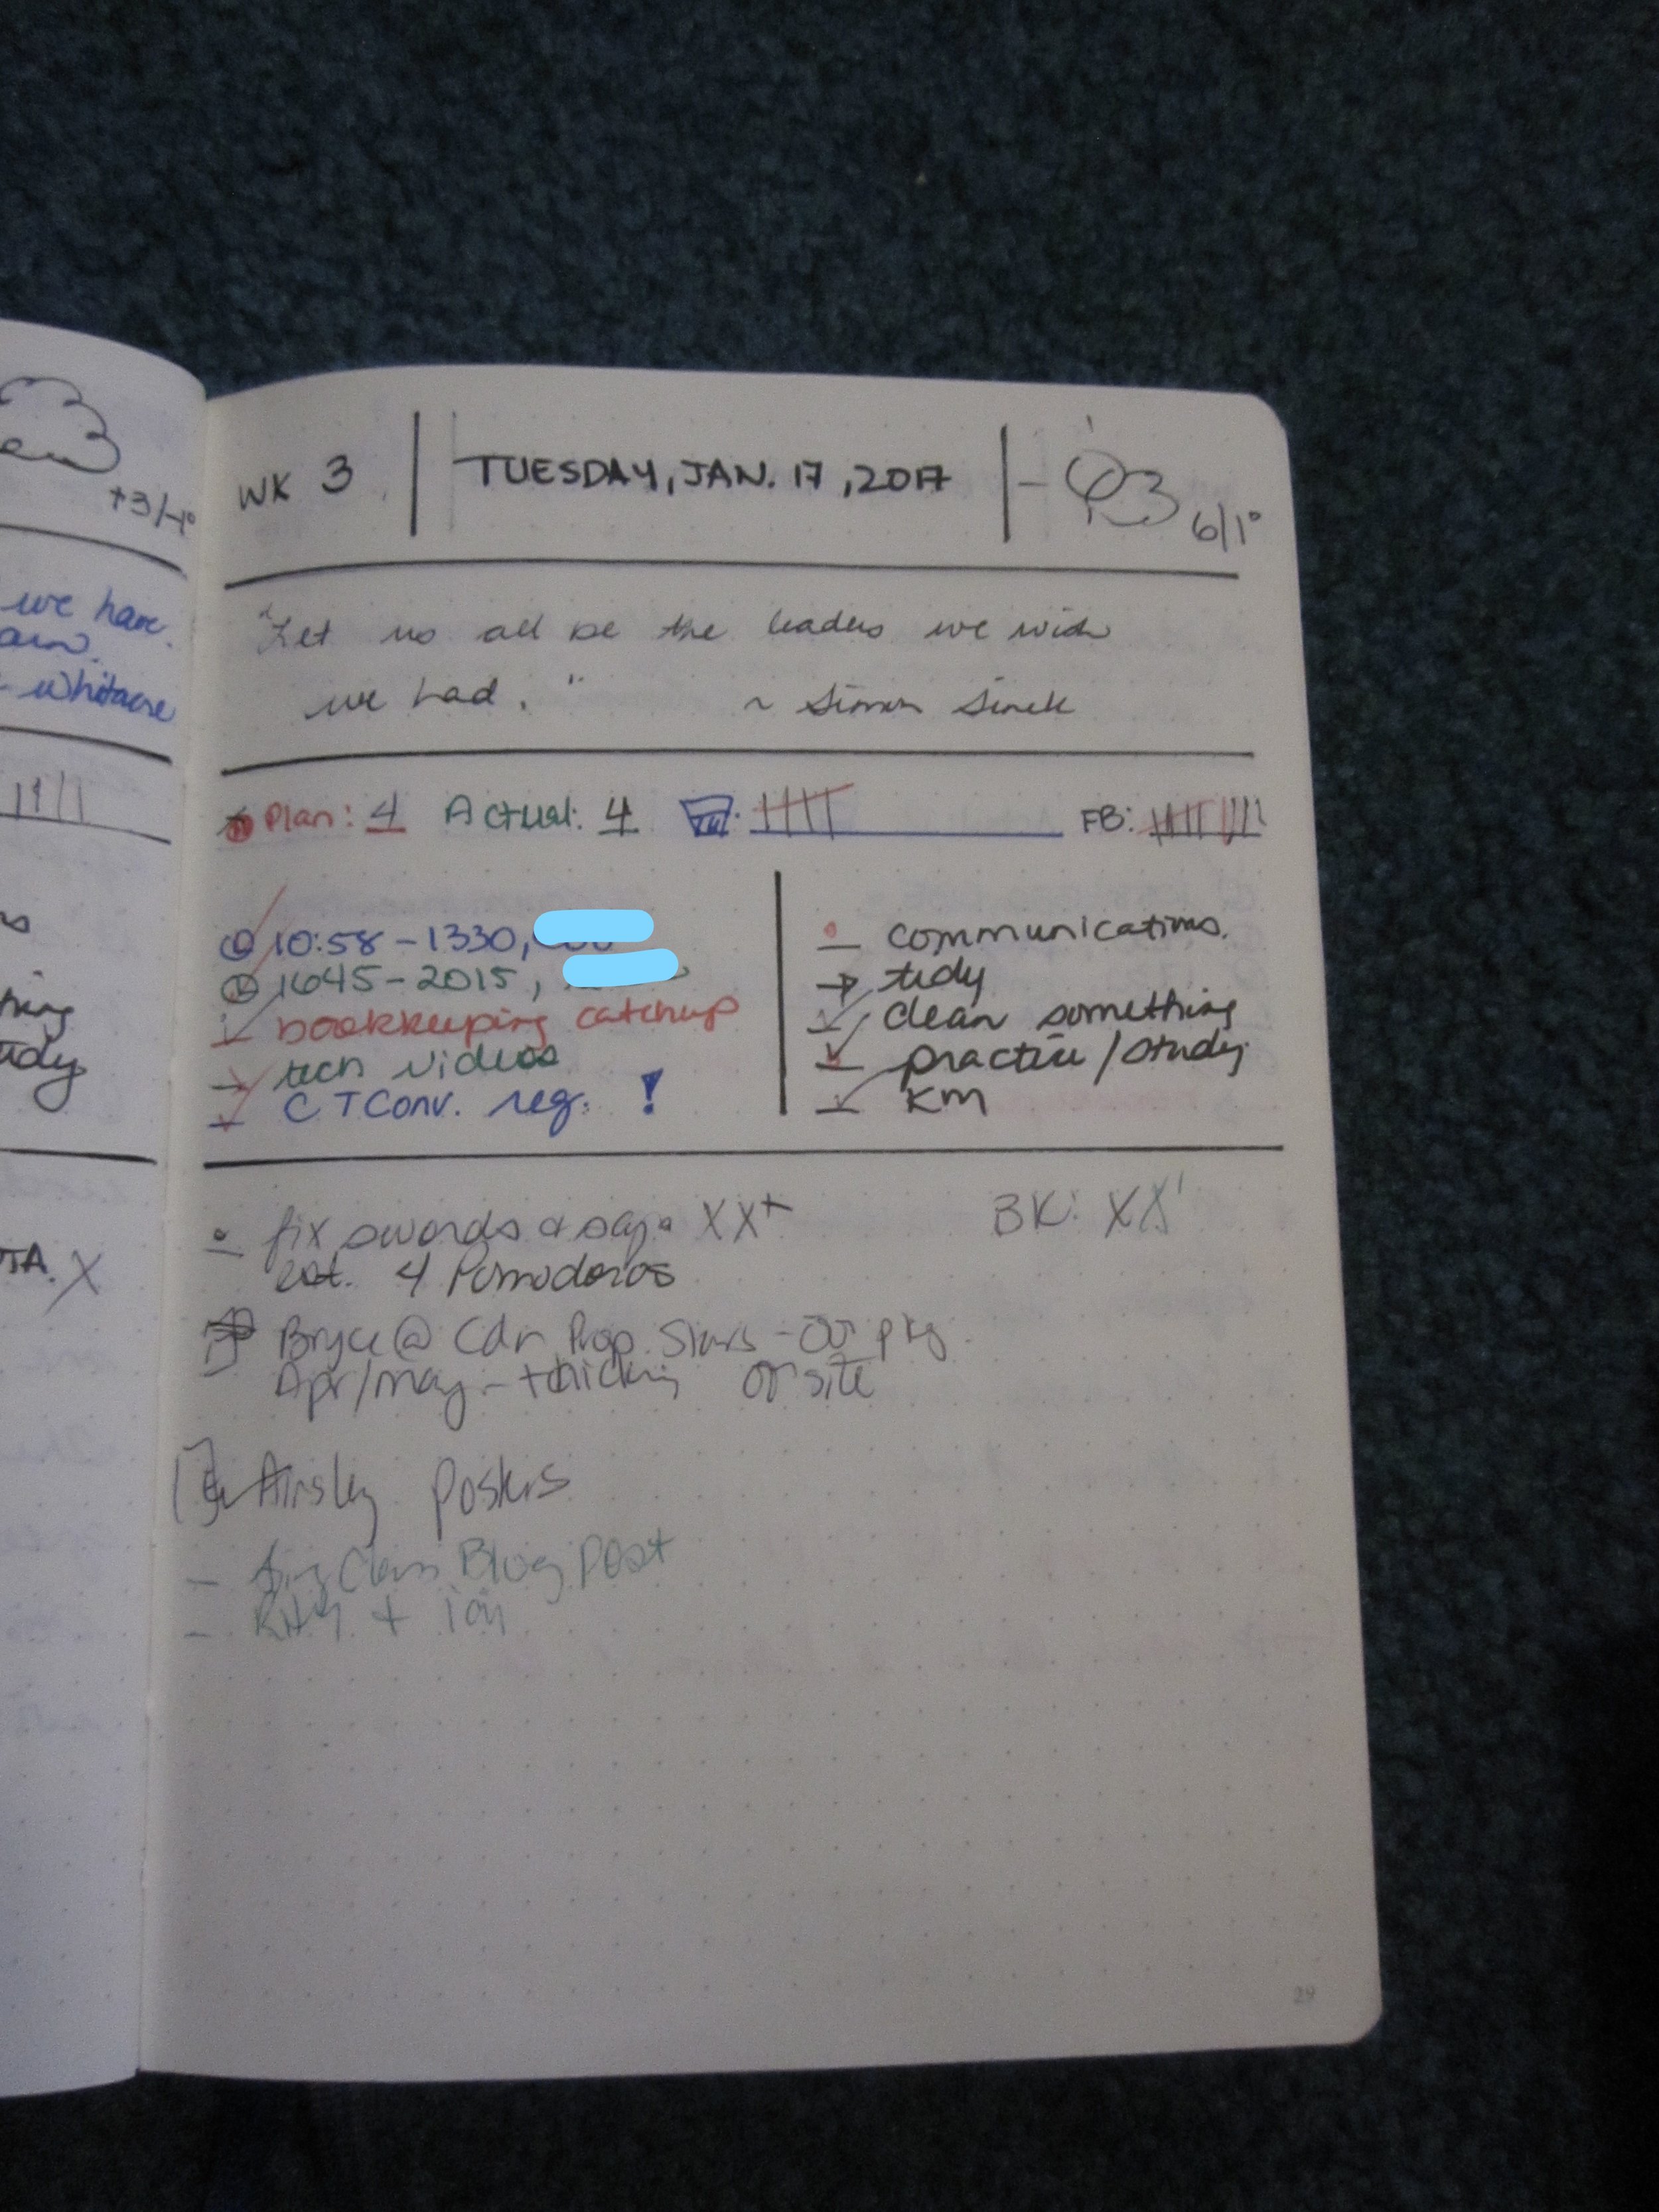 +3/-1°
we have
Whitacre
WK 3 TUESDAY, JAN. 17, 2017 6/1°
"Let us all be the leaders we wish
we had." ~ Simon Sinek
Plan: 4 Actual: 4 FB:
10:58-1330,
1645-2015,
bookkeeping catchup
tech videos
CTConv. reg. !
communications.
tidy
clean something
practice/study
KM
TA. X
fix swords & XX+ BK: XX
est. 4 Pomodoros
Bryce @ Cdn Prop. Stars - pkg
Apr/May - site
Ainsley Posters
Class Blog Post
29